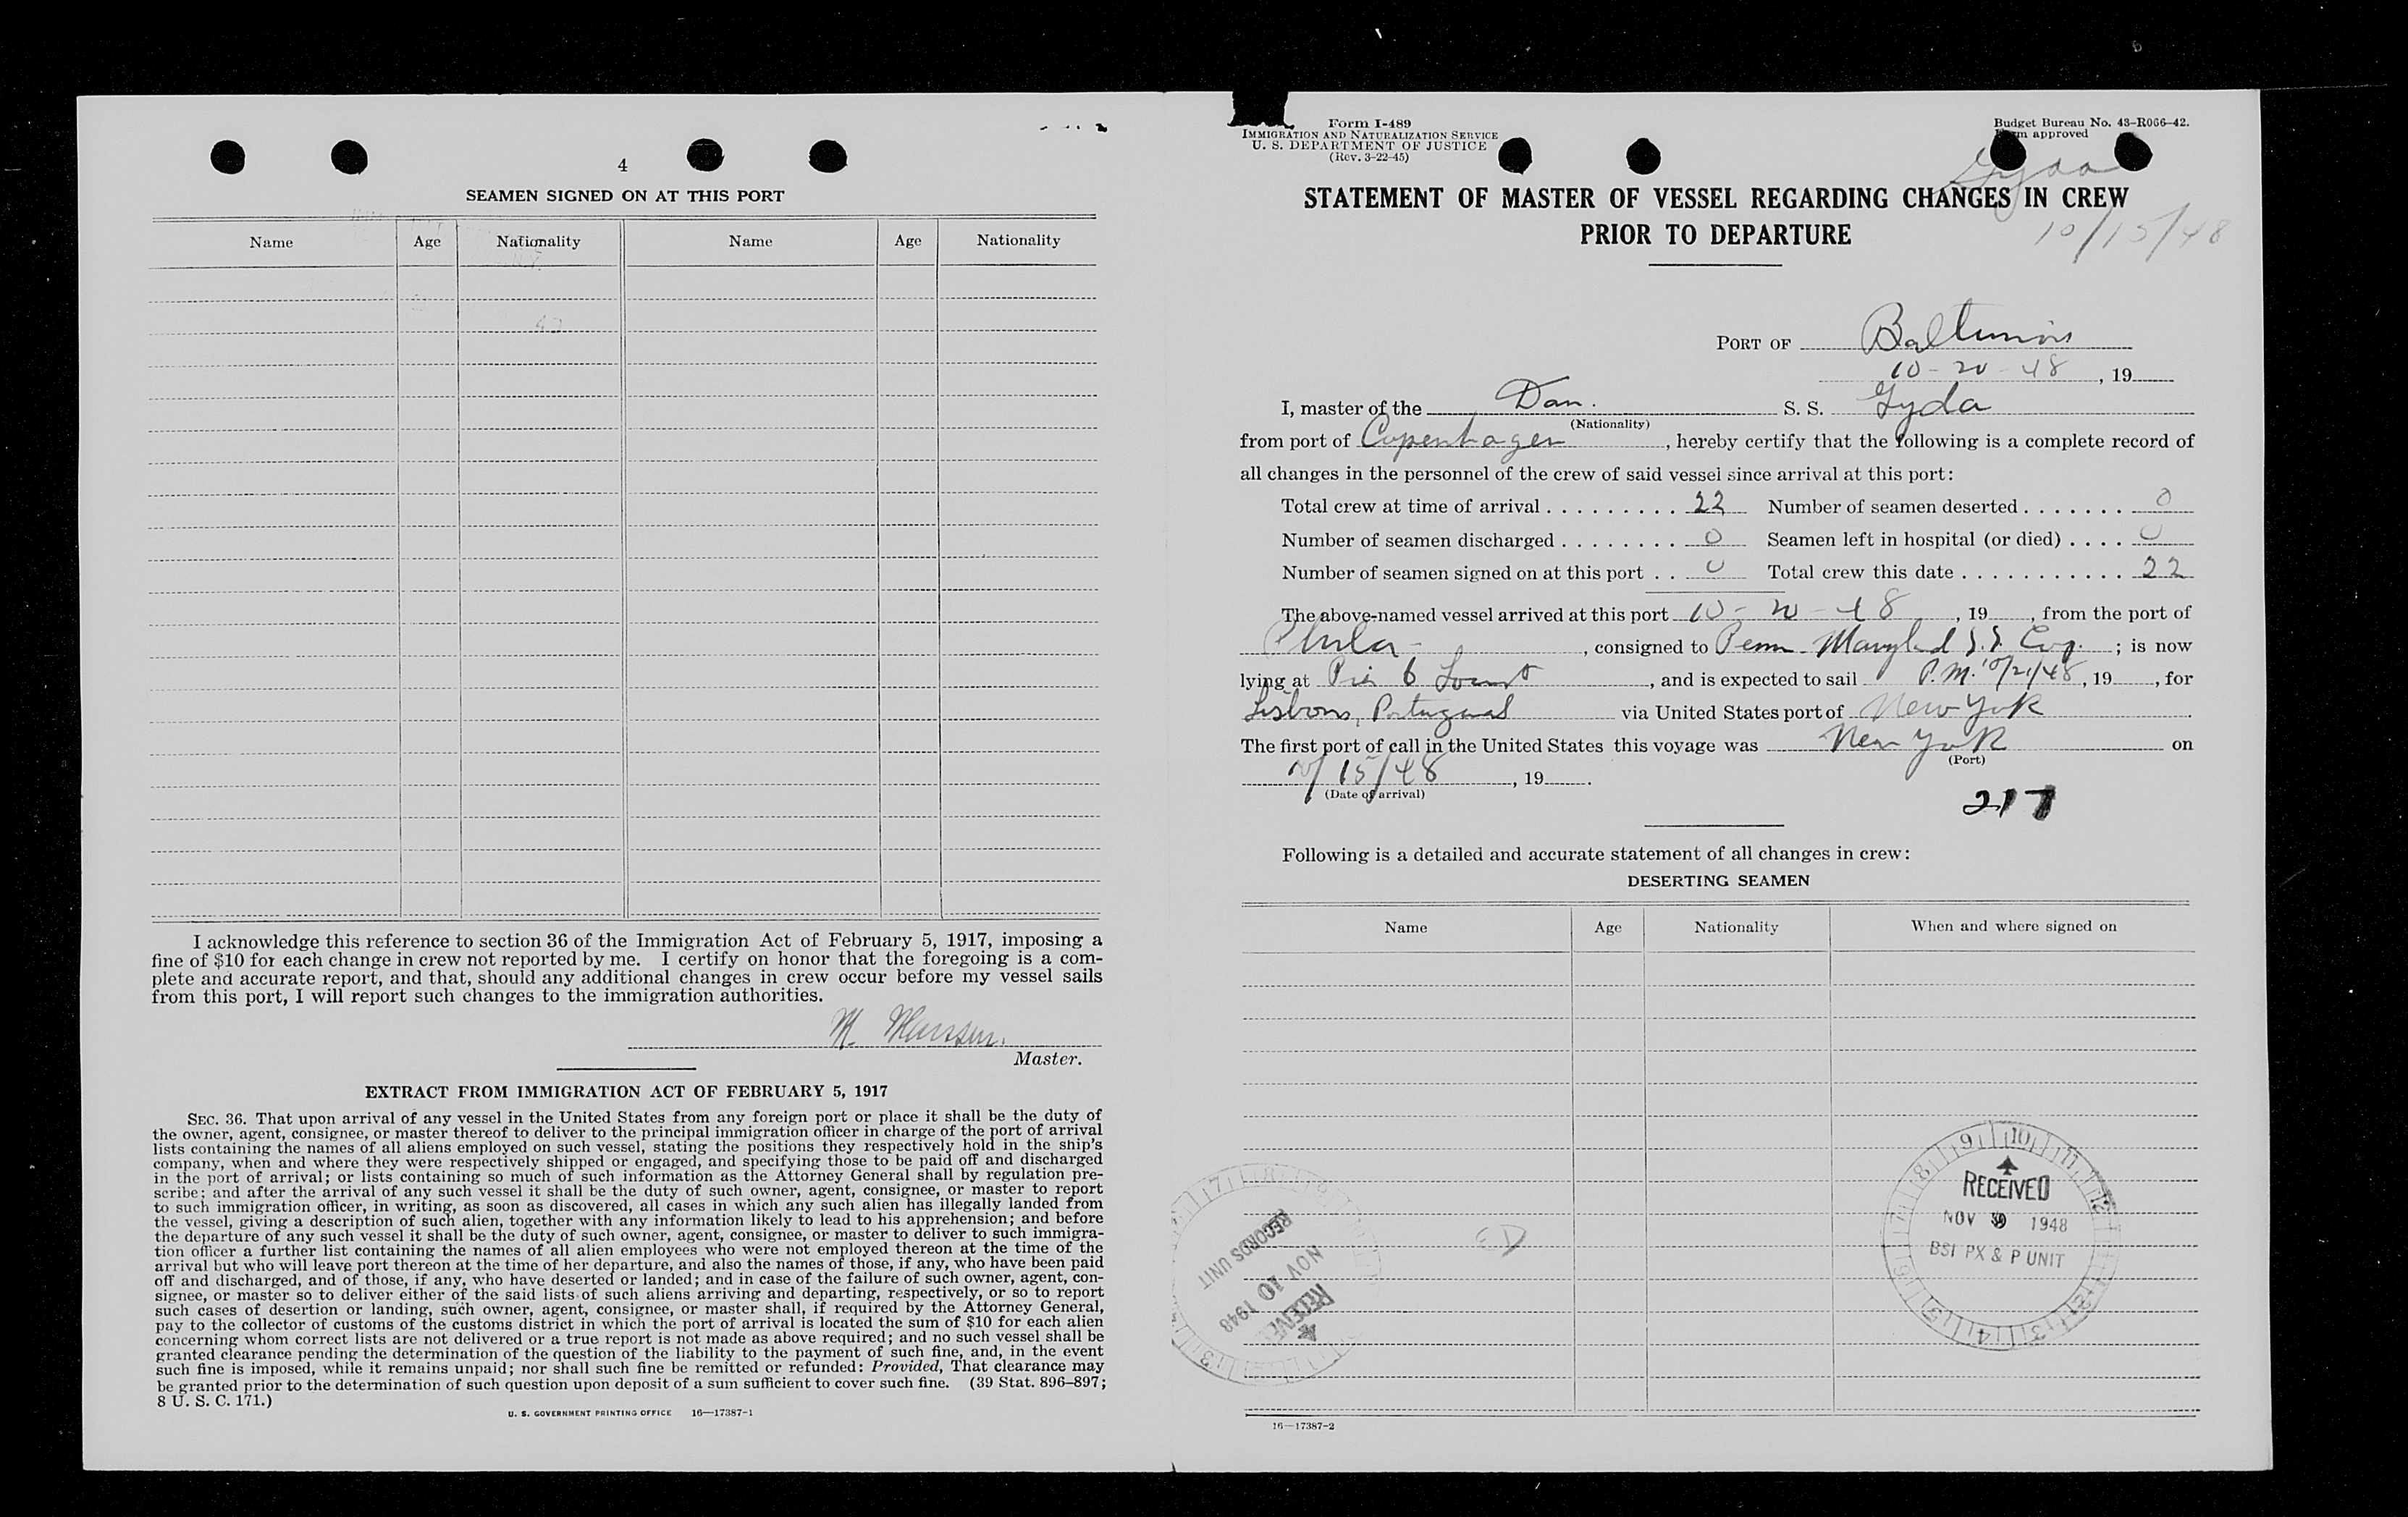 4
SEAMEN SIGNED ON AT THIS PORT
Name Age Nationality Name Age Nationality
I acknowledge this reference to section 36 of the Immigration Act of February 5, 1917, imposing a
fine of $10 for each change in crew not reported by me. I certify on honor that the foregoing is a com-
plete and accurate report, and that, should any additional changes in crew occur before my vessel sails
from this port, I will report such changes to the immigration authorities.
M.
Master.
EXTRACT FROM IMMIGRATION ACT OF FEBRUARY 5, 1917
SEC. 36. That upon arrival of any vessel in the United States from any foreign port or place it shall be the duty of
the owner, agent, consignee, or master thereof to deliver to the principal immigration officer in charge of the port of arrival
lists containing the names of all aliens employed on such vessel, stating the positions they respectively hold in the ship's
company, when and where they were respectively shipped or engaged, and specifying those to be paid off and discharged
in the port of arrival; or lists containing so much of such information as the Attorney General shall by regulation pre-
scribe; and after the arrival of any such vessel it shall be the duty of such owner, agent, consignee, or master to report
to such immigration officer, in writing, as soon as discovered, all cases in which any such alien has illegally landed from
the vessel, giving a description of such alien, together with any information likely to lead to his apprehension; and before
the departure of any such vessel it shall be the duty of such owner, agent, consignee, or master to deliver to such immigra-
tion officer a further list containing the names of all alien employees who were not employed thereon at the time of the
arrival but who will leave port thereon at the time of her departure, and also the names of those, if any, who have been paid
off and discharged, and of those, if any, who have deserted or landed; and in case of the failure of such owner, agent, con-
signee, or master so to deliver either of the said lists of such aliens arriving and departing, respectively, or so to report
such cases of desertion or landing, such owner, agent, consignee, or master shall, if required by the Attorney General,
pay to the collector of customs of the customs district in which the port of arrival is located the sum of $10 for each alien
concerning whom correct lists are not delivered or a true report is not made as above required; and no such vessel shall be
granted clearance pending the determination of the question of the liability to the payment of such fine, and, in the event
such fine is imposed, while it remains unpaid; nor shall such fine be remitted or refunded: Provided, That clearance may
be granted prior to the determination of such question upon deposit of a sum sufficient to cover such fine. (39 Stat. 896–897;
8 U. S. C. 171.)
U. S. GOVERNMENT PRINTING OFFICE 16—17387-1
Form I-489
IMMIGRATION AND NATURALIZATION SERVICE
U. S. DEPARTMENT OF JUSTICE
(Rev. 3-22-45)
Budget Bureau No. 43-R066-42.
approved
Gyda
STATEMENT OF MASTER OF VESSEL REGARDING CHANGES IN CREW
PRIOR TO DEPARTURE
10/15/48
PORT OF Baltimore
10-20-48, 19
I, master of the Dan. S. S. Gyda
(Nationality)
from port of Copenhagen, hereby certify that the following is a complete record of
all changes in the personnel of the crew of said vessel since arrival at this port:
Total crew at time of arrival . . . . . . . . . 22 Number of seamen deserted . . . . . . . 0
Number of seamen discharged . . . . . . . . 0 Seamen left in hospital (or died) . . . . 0
Number of seamen signed on at this port . . 0 Total crew this date . . . . . . . . . . . 22
The above-named vessel arrived at this port 10-20-48, 19, from the port of
Phila-, consigned to Penn-Maryland S.S. Corp.; is now
lying at Pier 6 Locust, and is expected to sail P.M. 10/21/48, 19, for
Lisbon, Portugal via United States port of New York.
The first port of call in the United States this voyage was New York on
(Port)
10/15/48, 19.
(Date of arrival)
217
Following is a detailed and accurate statement of all changes in crew:
DESERTING SEAMEN
Name Age Nationality When and where signed on
9 10 11 12
RECEIVED
NOV 9 1948
BSI PX & P UNIT
RECEIVED
NOV 10 1948
RECORDS UNIT
16—17387-2